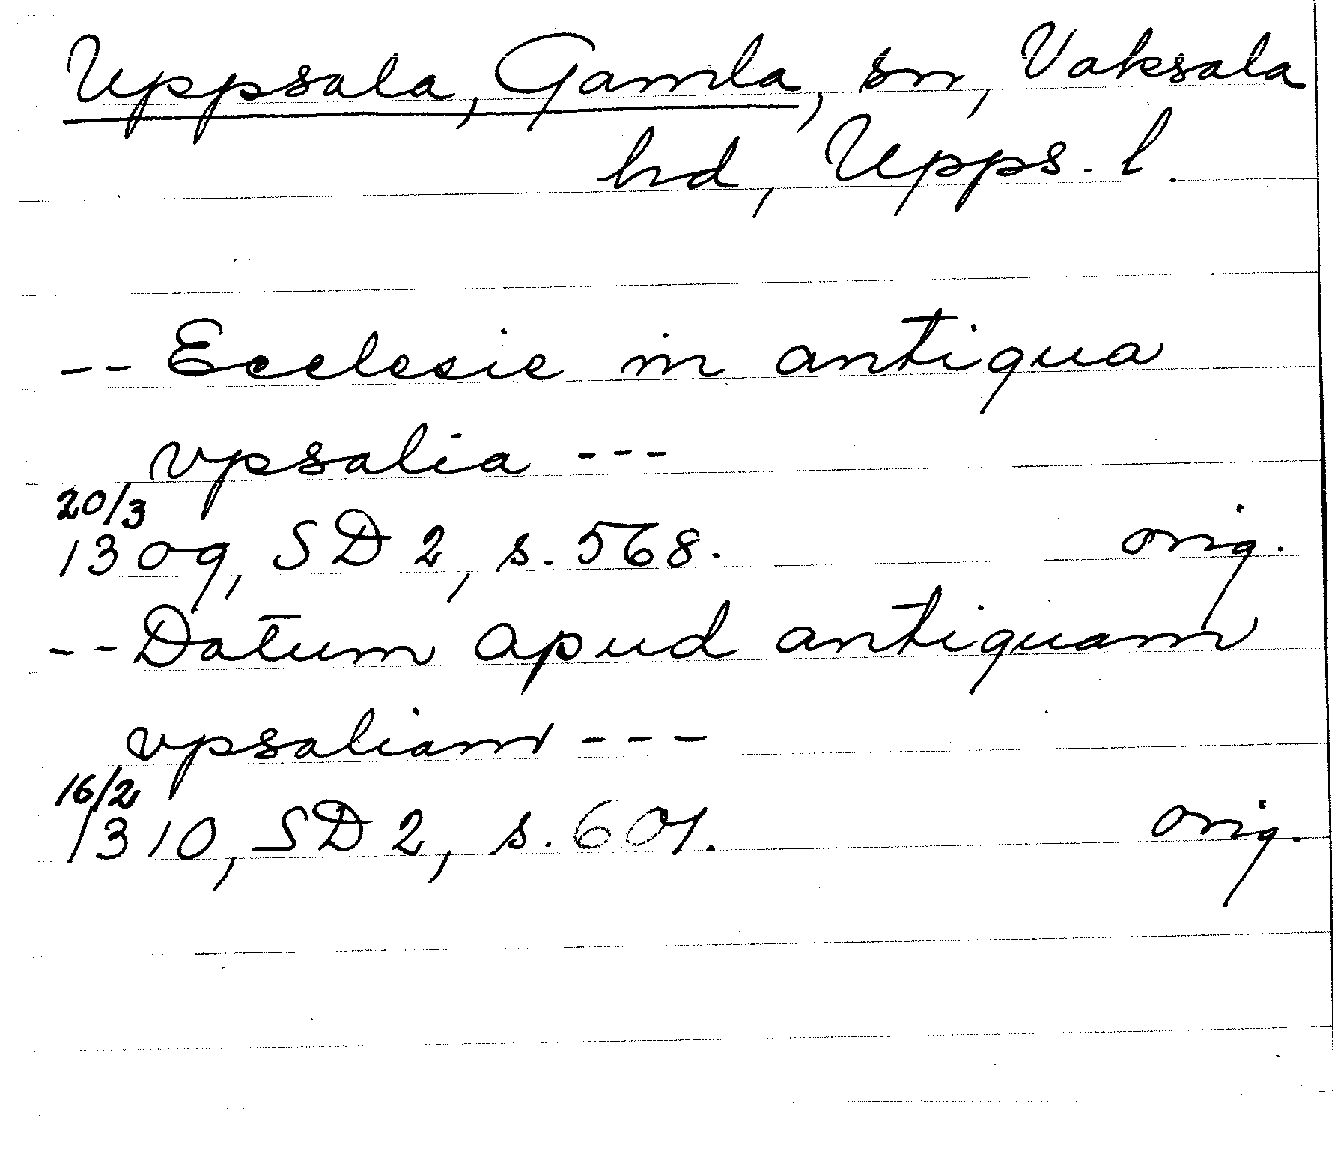 Uppsala, Gamla, sn, Vaksala
hd, Upps. l.
-- Ecclesie in antiqua
vpsalia ---
20/3
1309, SD 2, s. 568. orig.
-- Datum apud antiquam
vpsaliam ---
16/2
1310, SD 2, s. 601. orig.